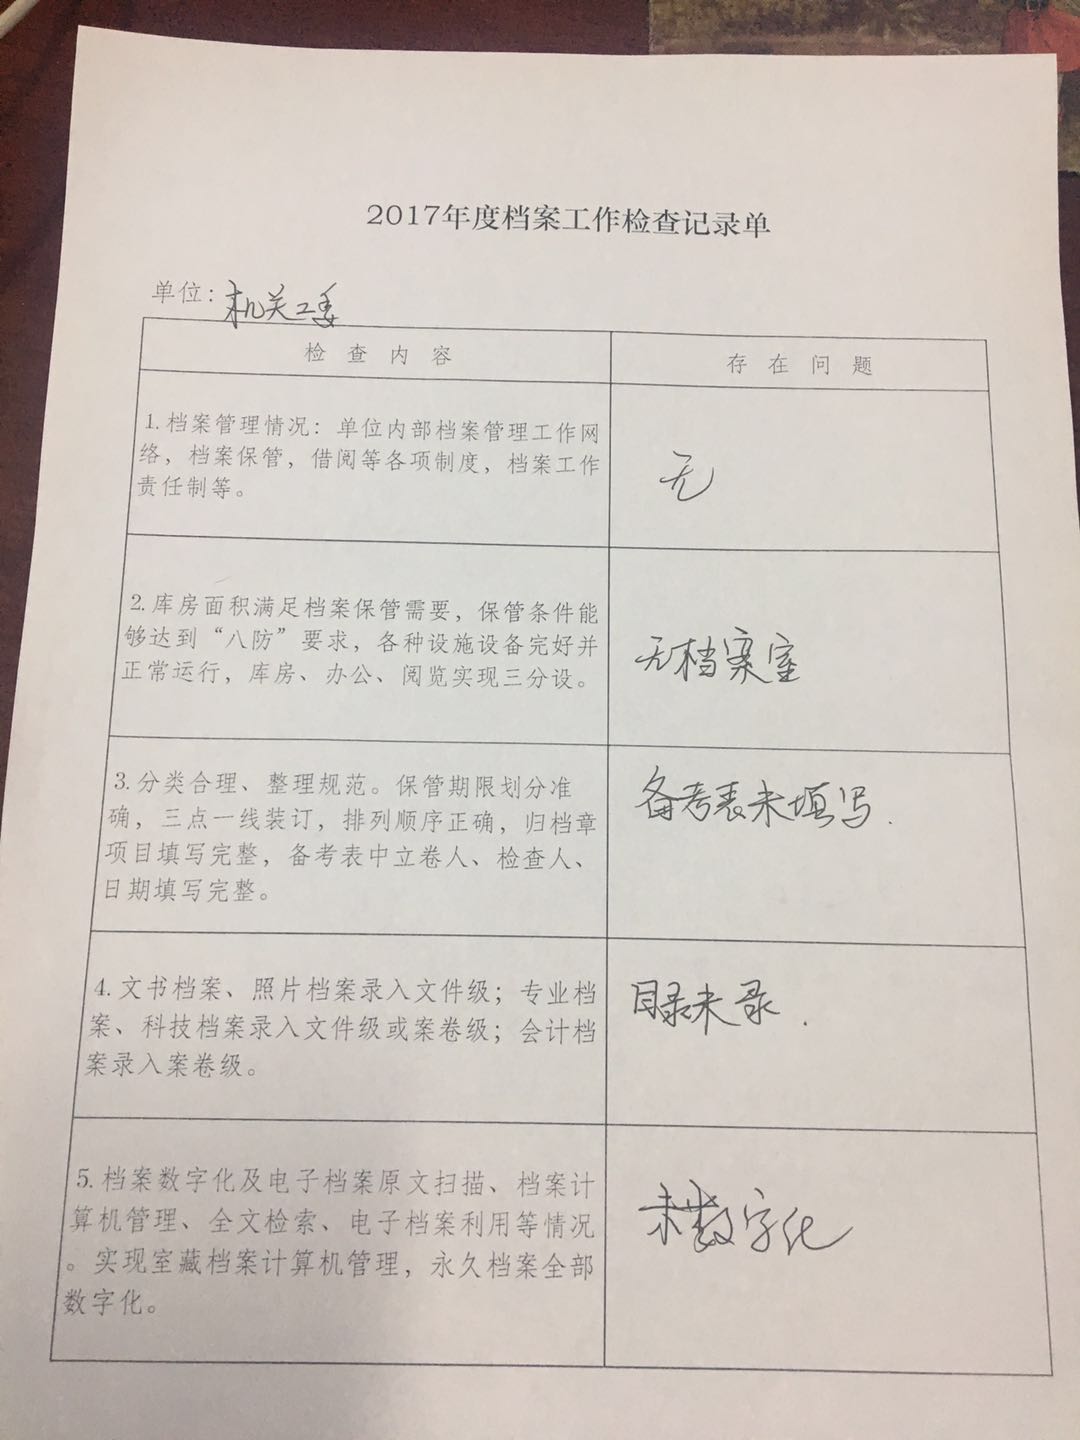 2017年度档案工作检查记录单
单位：机关工委
检查内容
存在问题
1.档案管理情况：单位内部档案管理工作网
络，档案保管，借阅等各项制度，档案工作
责任制等。
无
2.库房面积满足档案保管需要，保管条件能
够达到“八防”要求，各种设施设备完好并
正常运行，库房、办公、阅览实现三分设。
无档案室
3.分类合理、整理规范。保管期限划分准
确，三点一线装订，排列顺序正确，归档章
项目填写完整，备考表中立卷人、检查人、
日期填写完整。
备考表未填写.
4.文书档案、照片档案录入文件级；专业档
案、科技档案录入文件级或案卷级；会计档
案录入案卷级。
目录未录.
5.档案数字化及电子档案原文扫描、档案计
算机管理、全文检索、电子档案利用等情况
。实现室藏档案计算机管理，永久档案全部
数字化。
未数字化